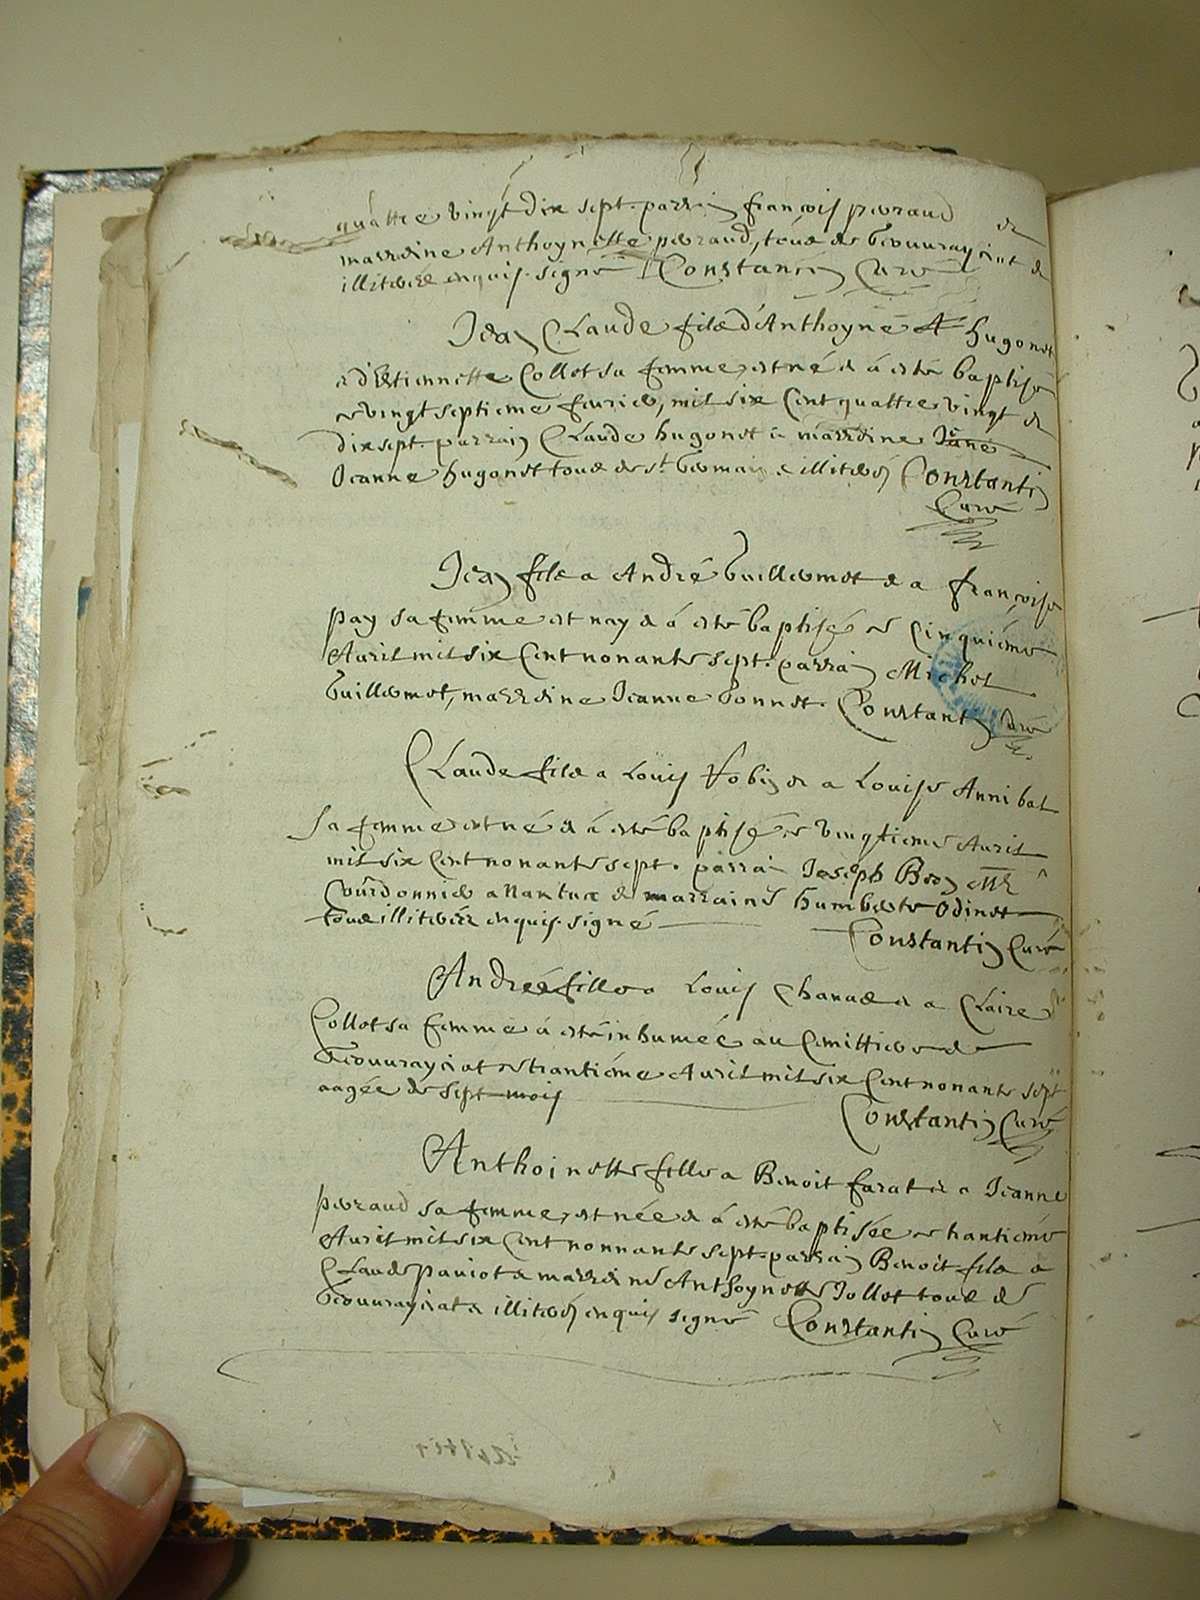 quattre vingt dix sept. parrain françois perraud et
marreine Anthoynette perraud, tous de Geovuraysiat et
illiteres enquis. signé Constantin Curé
Jean Claude fils d'Anthoyne hugonet
e d'Estiennette Collot sa femme, est né et á esté baptisé
ce vingt septieme feuvrier, mil six Cent quattre vingt et
dix sept. parrain Claude hugonet et marreine
Jeanne hugonet tous de St. Germain e illiteres Constantin
Curé
Jean fils a André Guillermet et a françoise
pay sa femme est nay et á esté baptisé ce Cinquiéme
Auril mil six Cent nonante sept. parrain Michel
Guillermet, marreine Jeanne bonnet. Constantin Curé
Claude fils a Louis Robin et a Louise Annibal
sa femme est né et á esté baptisé ce vingtieme Auril
mil six Cent nonante sept. parrain Joseph Bron Me
Courdonnier a Nantua et marraine humberte Odinet
tous illiteres enquis. signé Constantin Curé
Andrée fille a Louis Chanae et a Claire
Collot sa femme á esté inhumée au Cemittiere de
Geovuraysiat ce trantiéme Auril mil six Cent nonante sept
aagée de sept mois Constantin Curé
Anthoinette fille a Benoit farat et a Jeanne
perraud sa femme, est née et á esté baptisée ce trantiéme
Auril mil six Cent nonnante sept. parrain Benoit fils a
Claude paviot et marreine Anthoynette Jollet tous de
Geovuraysiat et illiteres enquis signé Constantin Curé